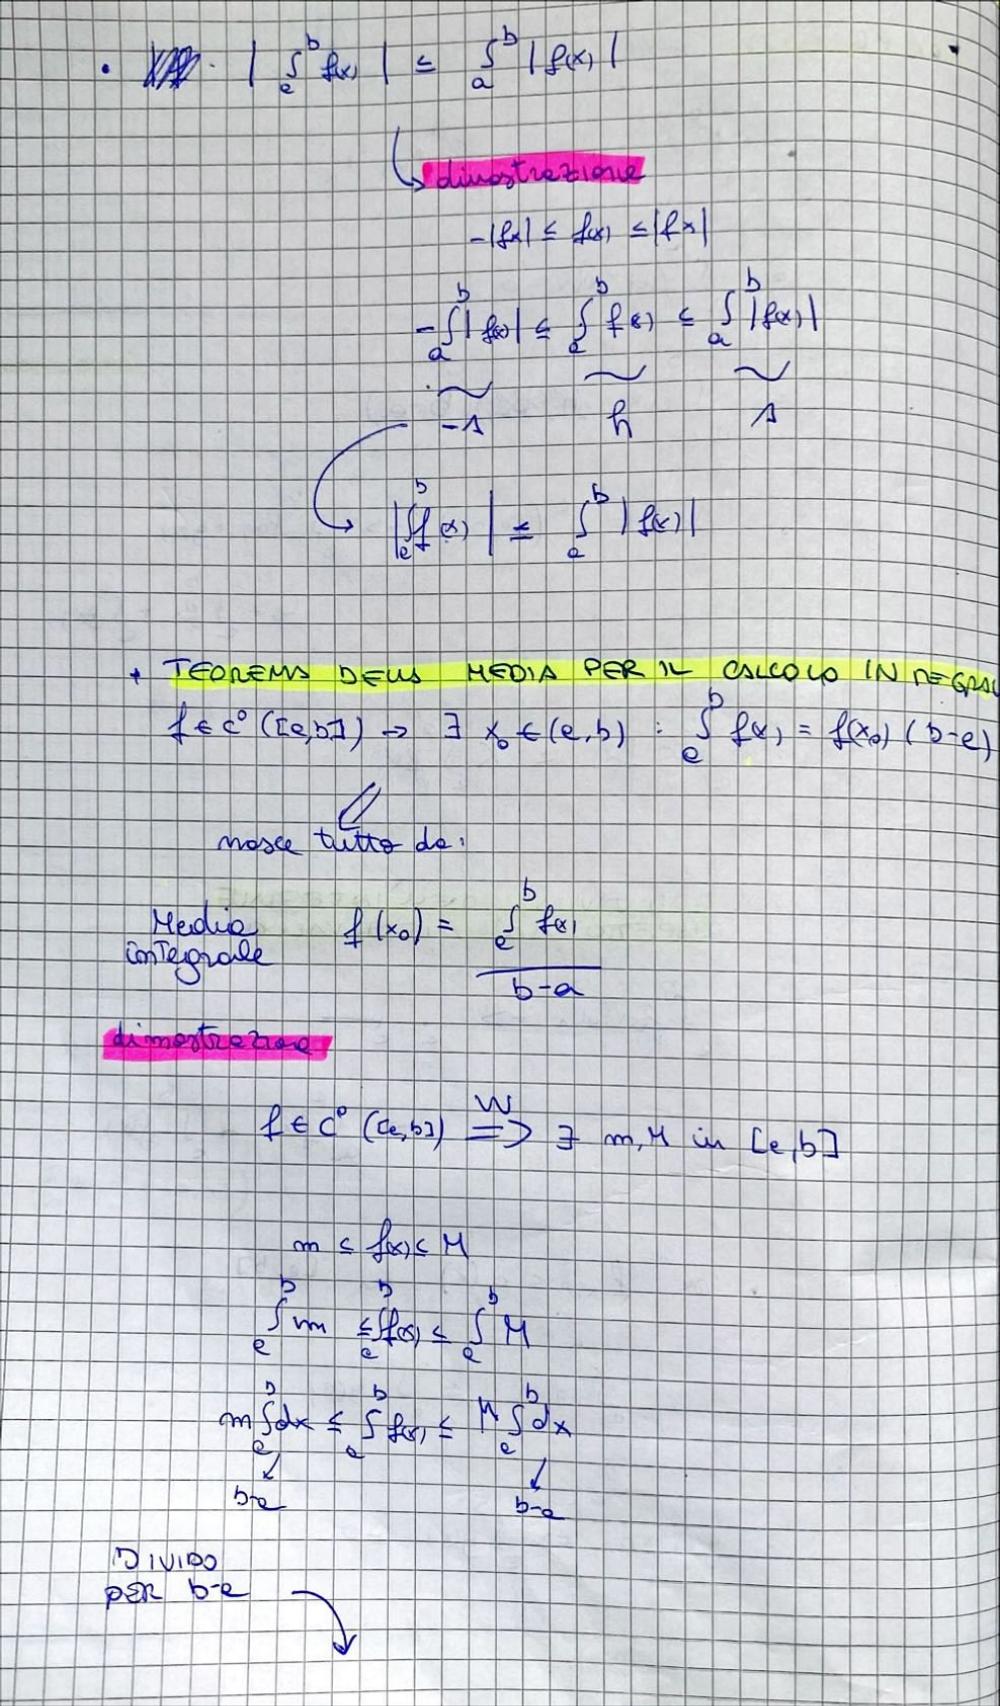 • | ∫ₐᵇ f(x) | ≤ ∫ₐᵇ |f(x)|
dimostrazione
-|fx| ≤ f(x) ≤ |fx|
-∫ₐᵇ |f(x)| ≤ ∫ₐᵇ f(x) ≤ ∫ₐᵇ |f(x)|
-s h s
|∫ₐᵇ f(x)| ≤ ∫ₐᵇ |f(x)|
+ TEOREMA DELLA MEDIA PER IL CALCOLO INTEGRAL
f ∈ C⁰ ([a,b]) → ∃ x₀ ∈ (a,b) : ∫ₐᵇ f(x) = f(x₀) (b-a)
nasce tutto da:
Media integrale f(x₀) = ∫ₐᵇ f(x) / b-a
dimostrazione
f ∈ C⁰ ([a,b]) ⇒ᵂ ∃ m,M in [a,b]
m ≤ f(x) ≤ M
∫ₐᵇ m ≤ ∫ₐᵇ f(x) ≤ ∫ₐᵇ M
m ∫ₐᵇ dx ≤ ∫ₐᵇ f(x) ≤ M ∫ₐᵇ dx
b-a b-a
DIVIDO
PER b-a